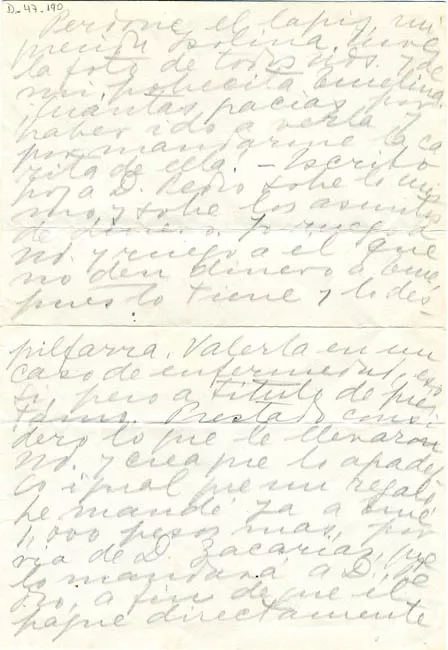 D-47-190
Perdone el lapiz, mi
prenda Isolina.
la foto de todos Uds. y de
mi pobecita Emelina
¡Cuántas gracias por
haber ido a verla y
por mandarme la ca
rita de ella. - Escribo
hoy a D. Pedro sobe lo mis
mo y sobe los asuntos
de dinero. Yo ruego a
Ud. y ruego a el que
no den dinero a Eme
pues lo tiene y lo des-
pilfarra. Valerla en un
caso de enfermedad, eso
si, pero a titulo de prés
tamo. Prestado consi
dero lo que le llevaron
Ud. y crea que lo agadez
co igual que un regalo
he mandé ya a Eme
1,000 pesos mas, por
via de D. Zacarías, que
lo mandará a D. Pe
dro, a fin de que él
pague directamente